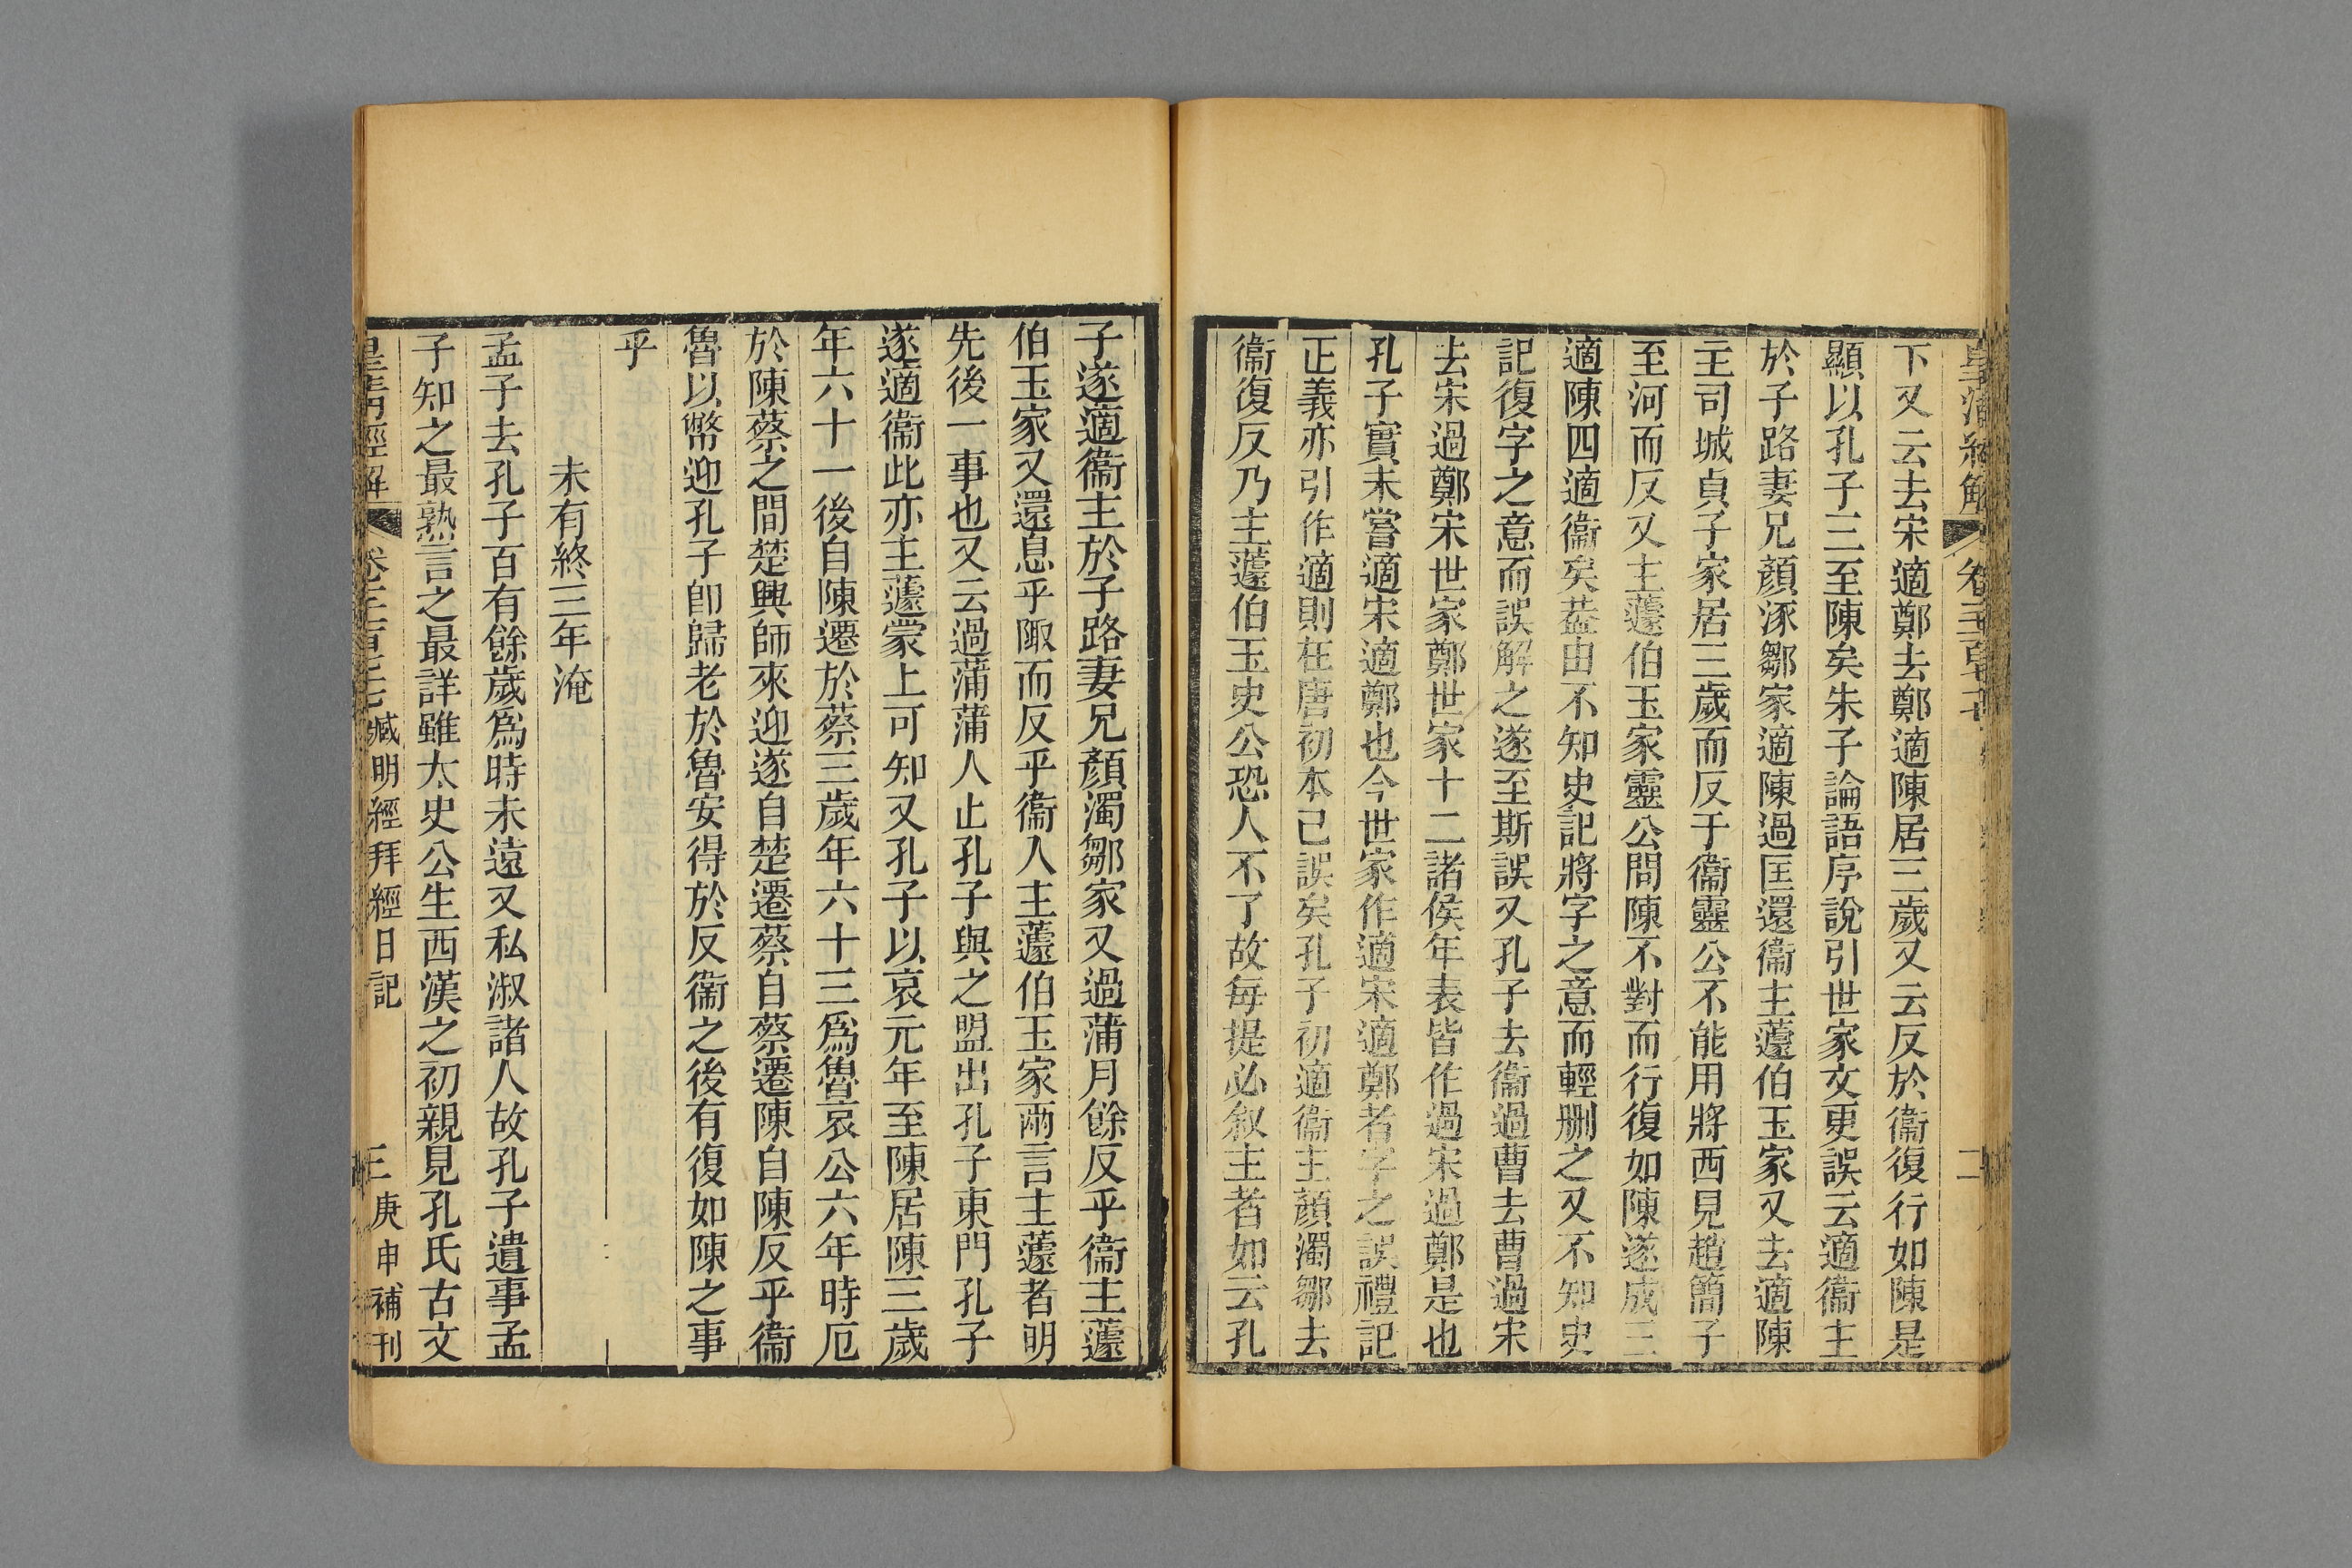 皇清經解 卷 二
下又云去宋適鄭去鄭適陳居三歲又云反於衞復行如陳是
顯以孔子三至陳矣朱子論語序說引世家文更誤云適衞主
於子路妻兄顏涿鄒家適陳過匡還衞主蘧伯玉家又去適陳
主司城貞子家居三歲而反于衞靈公不能用將西見趙簡子
至河而反又主蘧伯玉家靈公問陳不對而行復如陳遂成三
適陳四適衞矣葢由不知史記將字之意而輕删之又不知史
記復字之意而誤解之遂至斯誤又孔子去衞過曹去曹過宋
去宋過鄭宋世家鄭世家十二諸侯年表皆作過宋過鄭是也
孔子實未嘗適宋適鄭也今世家作適宋適鄭者字之誤禮記
正義亦引作適則在唐初本已誤矣孔子初適衞主顏濁鄒去
衞復反乃主蘧伯玉史公恐人不了故每提必叙主者如云孔
子遂適衞主於子路妻兄顏濁鄒家又過蒲月餘反乎衞主蘧
伯玉家又還息乎陬而反乎衞入主蘧伯玉家兩言主蘧者明
先後一事也又云過蒲蒲人止孔子與之盟出孔子東門孔子
遂適衞此亦主蘧蒙上可知又孔子以哀元年至陳居陳三歲
年六十一後自陳遷於蔡三歲年六十三爲魯哀公六年時厄
於陳蔡之間楚興師來迎遂自楚遷蔡自蔡遷陳自陳反乎衞
魯以幣迎孔子卽歸老於魯安得於反衞之後有復如陳之事
乎
未有終三年淹
孟子去孔子百有餘歲爲時未遠又私淑諸人故孔子遺事孟
子知之最熟言之最詳雖太史公生西漢之初親見孔氏古文
皇清經解 臧明經拜經日記 三 庚申補刊